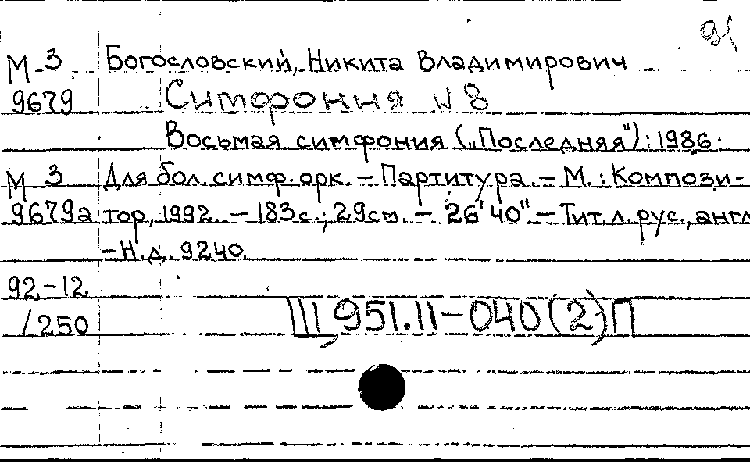 91
М-3 Богословский, Никита Владимирович
9679 Симфония N 8
Восьмая симфония („Последняя"): 1986.
М 3 Для бол. симф. орк. – Партитура. – М.: Компози-
9679а тор, 1992. – 183с.; 29см. – 26'40" – Тит. л. рус., англ
– Н.д. 9240.
92-12
/250 III, 951.11-040(2)П